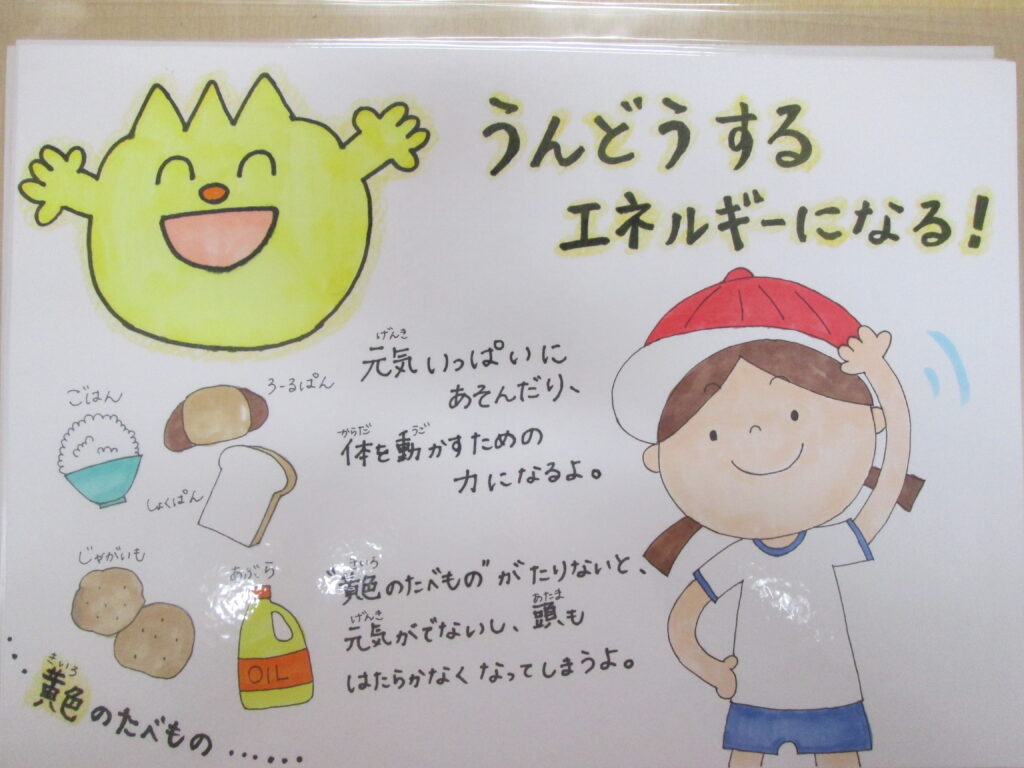 うんどうする
エネルギーになる!
げんき
元気いっぱいに
あそんだり、
からだ うご
体を動かすための
力になるよ。
ごはん
ろーるぱん
しょくぱん
じゃがいも
あぶら
OIL
きいろ
"黄色のたべもの"がたりないと、
げんき あたま
元気がでないし、頭も
はたらかなくなってしまうよ。
きいろ
黄色のたべもの……